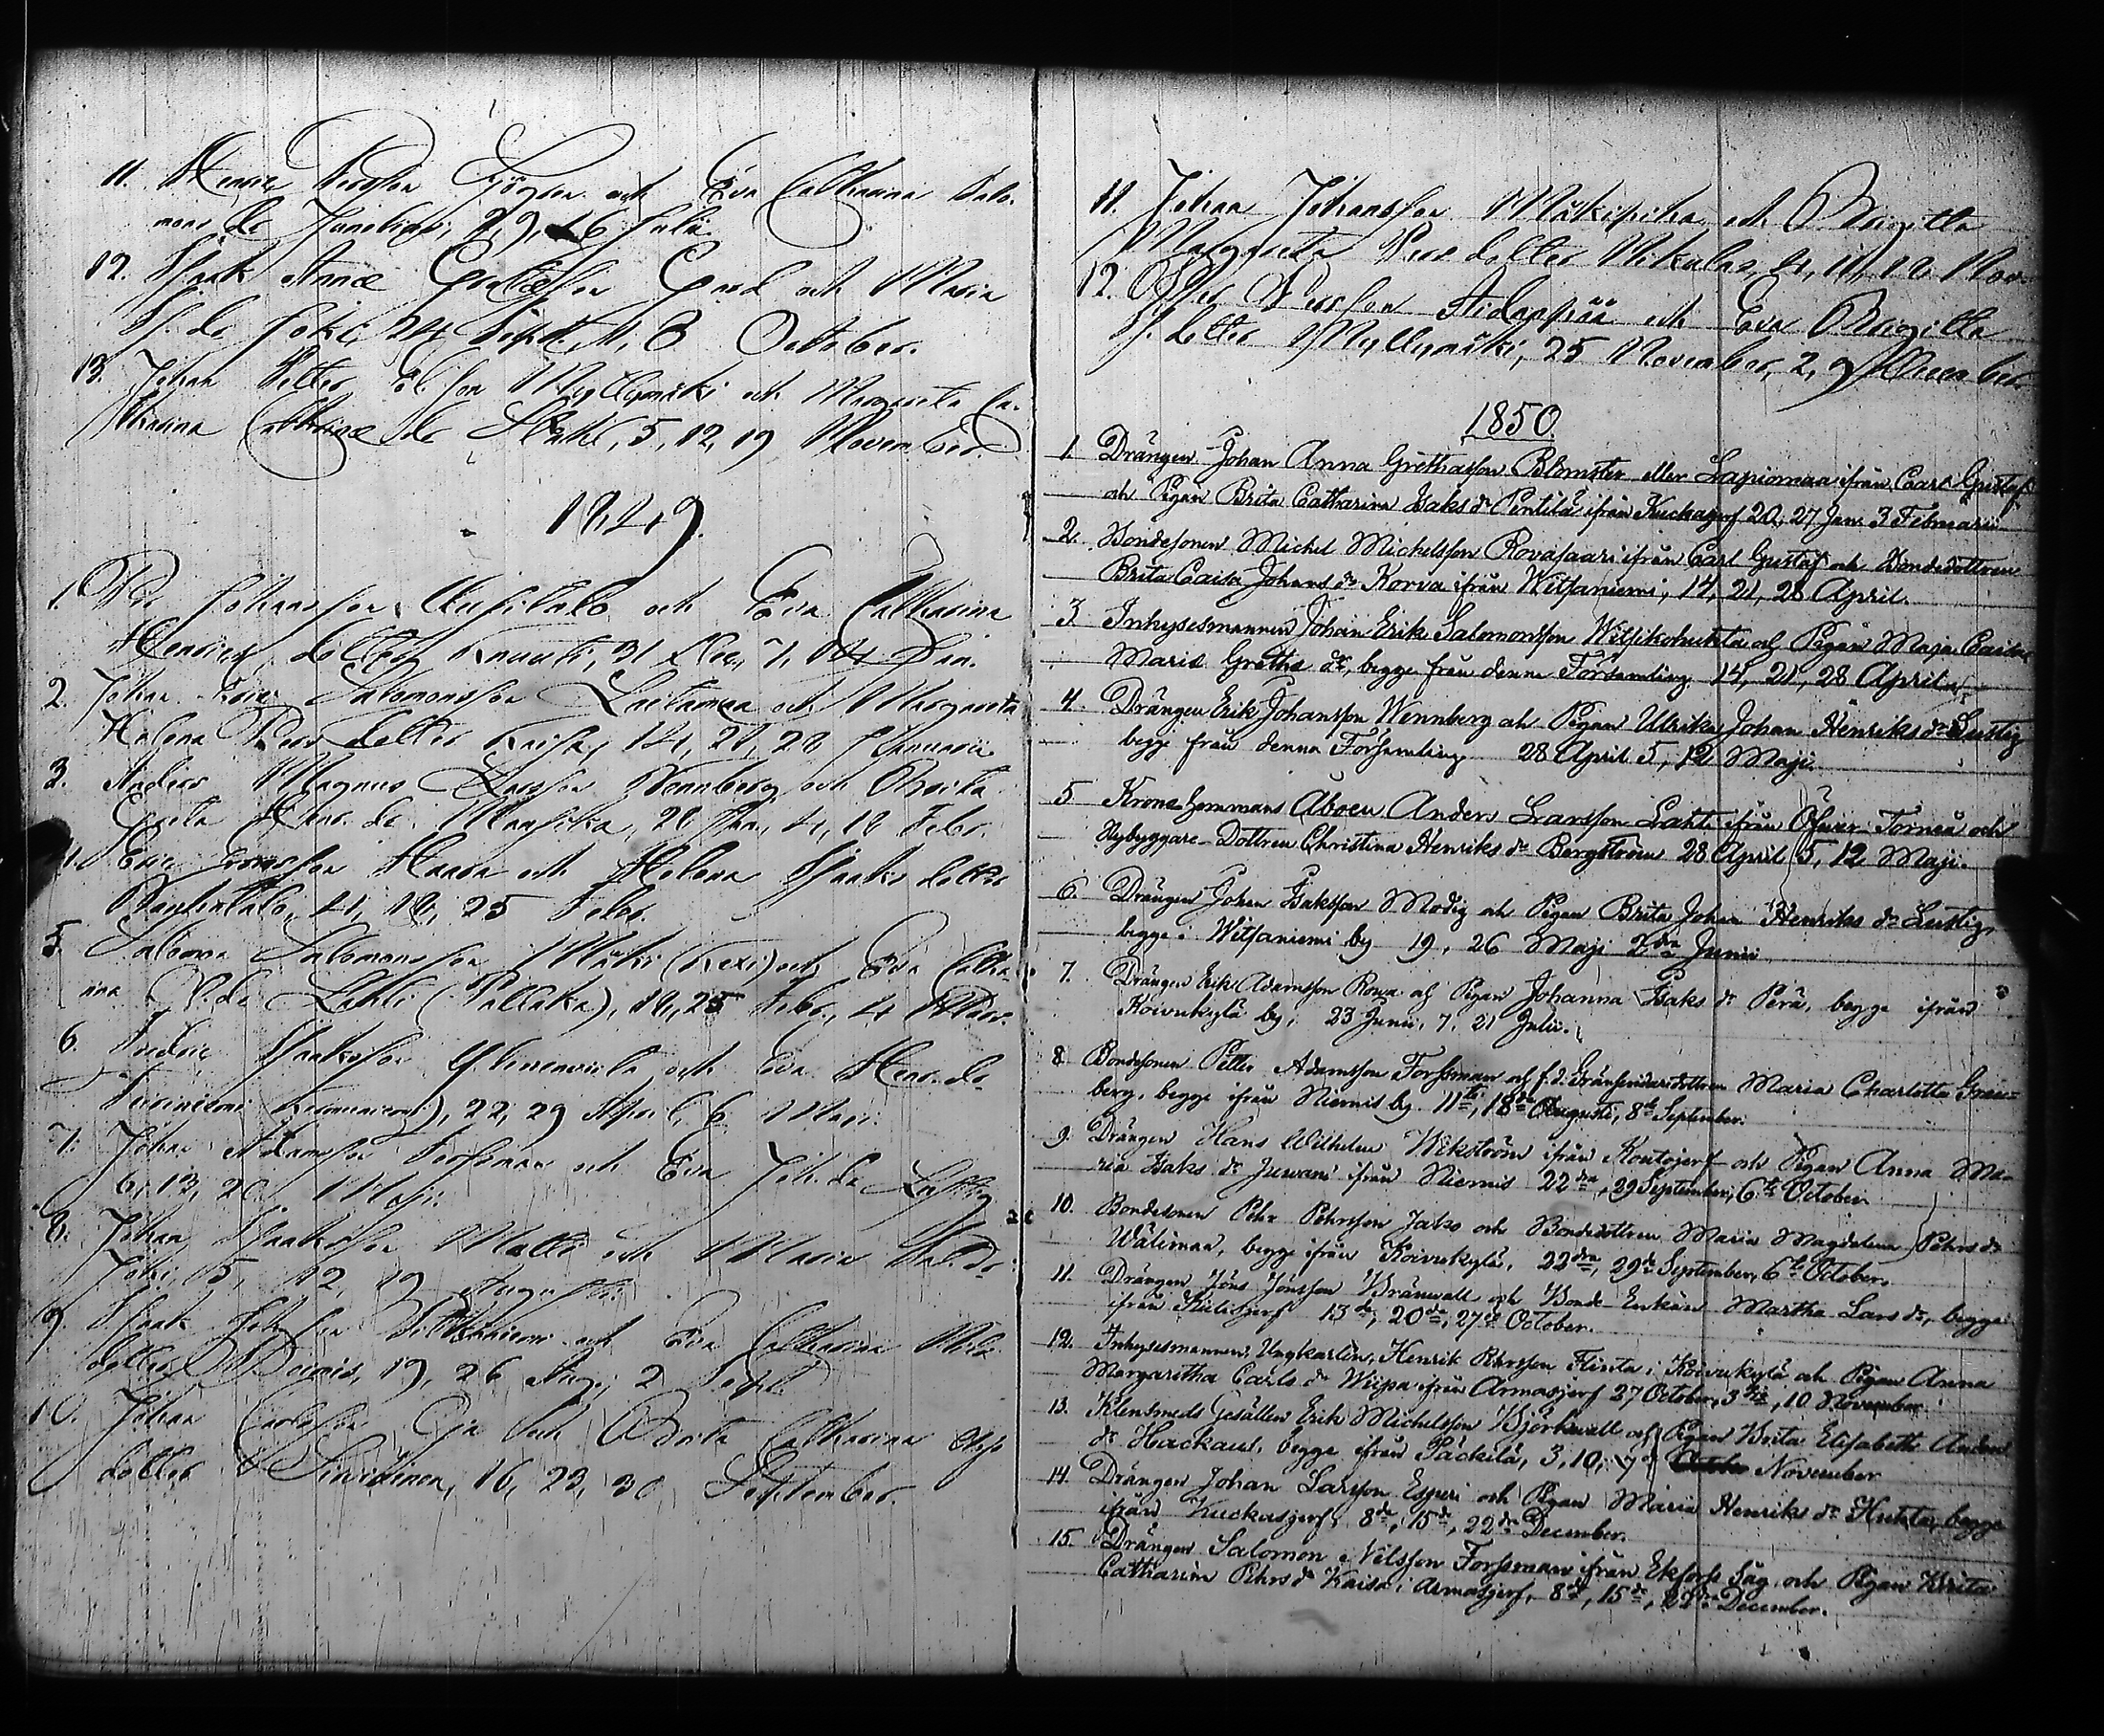 11. Henric Persson och Eva Catharina Salo-
mons dr 2, 9, 16 Julii.
12. Isaak Anna och Maria
Is. dr Joki, 24 Sept. 1, 8 October.
13. Johan Petter Ol. son Myllymäki och Margareta Ca-
tharina dr 5, 12, 19 November.
1849.
1. Per Johansson och Eva Catharina
Henrics dotter Knuuti, 31 Dec., 7, 14 Jan.
2. Johan Eric Salomonsson och Margareta
Helena Pers dotter Kaisa, 14, 21, 28 Januarii.
3. Anders Magnus Larsson Wennberg och
Greta Henr. dr Mansikka, 28 Jan., 4, 18 Febr.
4. Eric Ericsson Haara och Helena Isaaks dotter
4, 18, 25 Febr.
5. Salomon Salomonsson Mäki (Rexi) och Eva Catha-
rina P. dr Lahti (Pallaka), 18, 25 Febr., 4 Mars.
6. Fredric Isaaksson och Eva Henr. dr
22, 29 April, 6 Maji.
7. Johan Adamsson Forssman och Eva Joh. dr Lustig
6, 13, 20 Maji.
8. Johan Isaaksson Matti och Maria Sal. dr
Joki, 5, 12, 19 Augusti.
9. Isaak och Eva Catharina Nils
dotter 19, 26 Aug., 2 Sept.
10. Johan Carlsson Oja och Brita Catharina
dotter 16, 23, 30 September.
11. Johan Johansson Mäkipiha och Brigitta
Margareta Pers dotter Nikulas, 4, 11, 18 Nov.
12. Per Persson Aidanpää och Eva Brigitta
I. dotter Myllymäki, 25 November, 2, 9 December.
1850.
1. Drängen Johan Anna Grethasson Blomster eller Lapiomaa ifrån Carl Gustaf
och Pigan Brita Catharina Isaks dr Pentilä ifrån Kuckasjerf 20, 27 Jan. 3 Februarii
2. Bondesonen Michel Mickelsson Rovasaari ifrån Carl Gustaf och Bondedottren
Brita Caisa Johans dr Korva ifrån Witsaniemi, 14, 21, 28 April.
3 Inhysesmannen Johan Erik Salomonsson Wilsikohukta och Pigan Maja Caisa
Maria Gretha dr, begge från denna Församling 14, 21, 28 April.
4. Drängen Erik Johansson Wennberg och Pigan Ulrika Johan Henriks dr Lustig
begge från denna Församling 28 April 5, 12 Maji.
5 Kronohemmans Åboen Anders Larsson Lahti ifrån Öfver Torneå och
Nybyggare-Dottren Christina Henriks dr Bergström 28 April 5, 12 Maji.
6. Drängen Johan Isaksson Modig och Pigan Brita Johan Henriks dr Lustig,
begge i Witsaniemi by 19, 26 Maji 2dra Junii
7. Drängen Erik Adamsson Rowa och Pigan Johanna Isaks dr Perä, begge ifrån
Koivukylä by, 23 Junii, 7, 21 Julii.
8 Bondesonen Petter Adamsson Forssman och f.d. Gränsridaredottren Maria Charlotta Grön-
berg, begge ifrån Niemis by. 11te, 18de Augusti, 8de September.
9. Drängen Hans Wilhelm Wikström ifrån Koutojerf och Pigan Anna Ma-
ria Isaks dr Juwani ifrån Niemis 22dra, 29 September, 6te October.
10. Bondesonen Pehr Pehrsson Jako och Bondedottren Maria Magdalena Pehrs dr
Wälimaa, begge ifrån Koivukylä, 22dra, 29de September, 6te October.
11. Drängen Jöns Jönsson Brännvall och Bonde Enkan Martha Lars dr, begge
ifrån 13de, 20de, 27de October.
12. Inhysesmannen, Ungkarlen, Henrik Pehrsson Flinta i Koivukylä och Pigan Anna
Margaretha Carls dr Wiipa ifrån Armasjerf 27 October, 3dje, 10 November
13. Klensmeds Gesällen Erik Michelsson Björkwall och Pigan Brita Elisabeth Anders
dr Hackaul, begge ifrån Päckilä, 3, 10, 17 November
14. Drängen Johan Larsson Esperi och Pigan Maria Henriks dr Huhta, begge
ifrån Kuckasjerf, 8de, 15de, 22dra December.
15. Drängen Salomon Nilsson Forssman ifrån Ekfors Såg, och Pigan Brita
Catharina Pehrs dr Kaisa i Armasjerf, 8de, 15de, 22dra December.